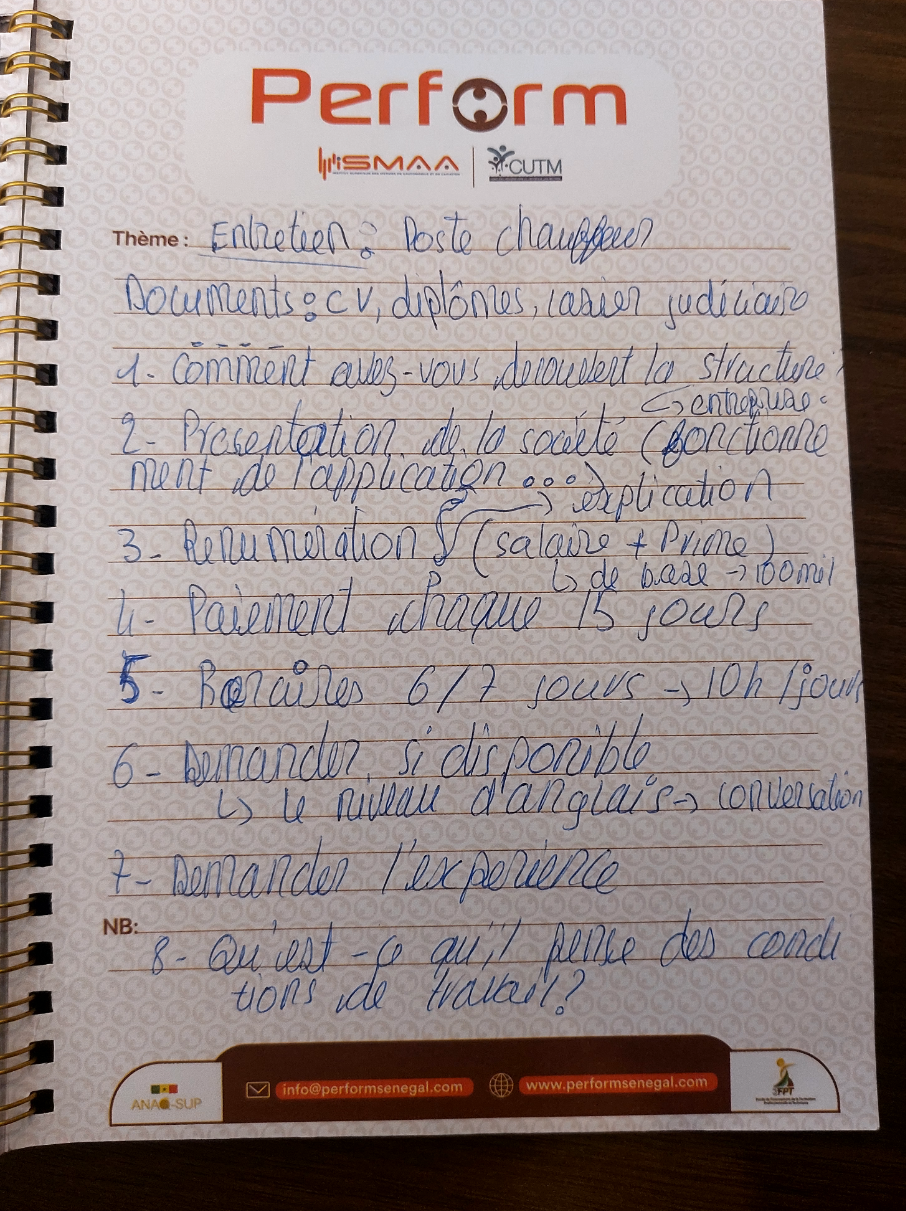 Perform
ISMAA CUTM
Thème : Entretien : Poste chauffeur
Documents : CV, diplômes, casier judiciaire
1- Comment avez-vous decouvert la structure ?
↳ entreprise
2- Presentation de la société (fonctionne
ment de l'application ...)
→ explication
3- Renumération (salaire + Prime)
↳ de base → 100mil
4- Paiement chaque 15 jours
5- Horaires 6/7 jours → 10h/jours
6- Demander si disponible
↳ le niveau d'anglais → conversation
7- Demander l'experience
NB:
8- Qu'est-ce qu'il pense des condi
tions de travail ?
ANAQ-SUP info@performsenegal.com www.performsenegal.com 3FPT